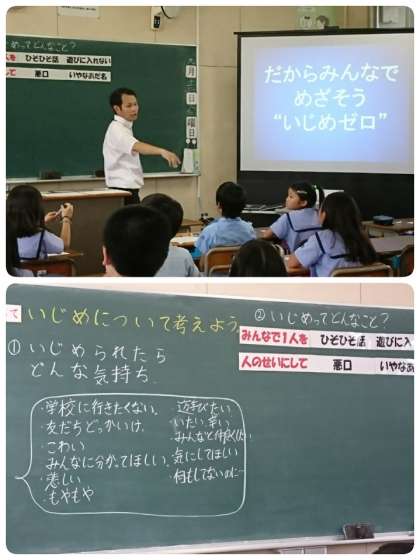 いじめってどんなこと?
人を ひそひそ話 遊びに入れない
して 悪口 いやなあだ名
月
日
曜日
だからみんなで
めざそう
“いじめゼロ”
て いじめについて考えよう
① いじめられたら
どんな気持ち
・学校に行きたくない。
・友だちどっかいけ。
・こわい
みんなに分かってほしい。
・悲しい
・もやもや
遊びたい
・いたい、辛い
・みんなと仲良くしたい
・気にしてほしい
・何もしてないのに…
② いじめってどんなこと?
みんなで1人を ひそひそ話 遊びに入
人のせいにして 悪口 いやなあ